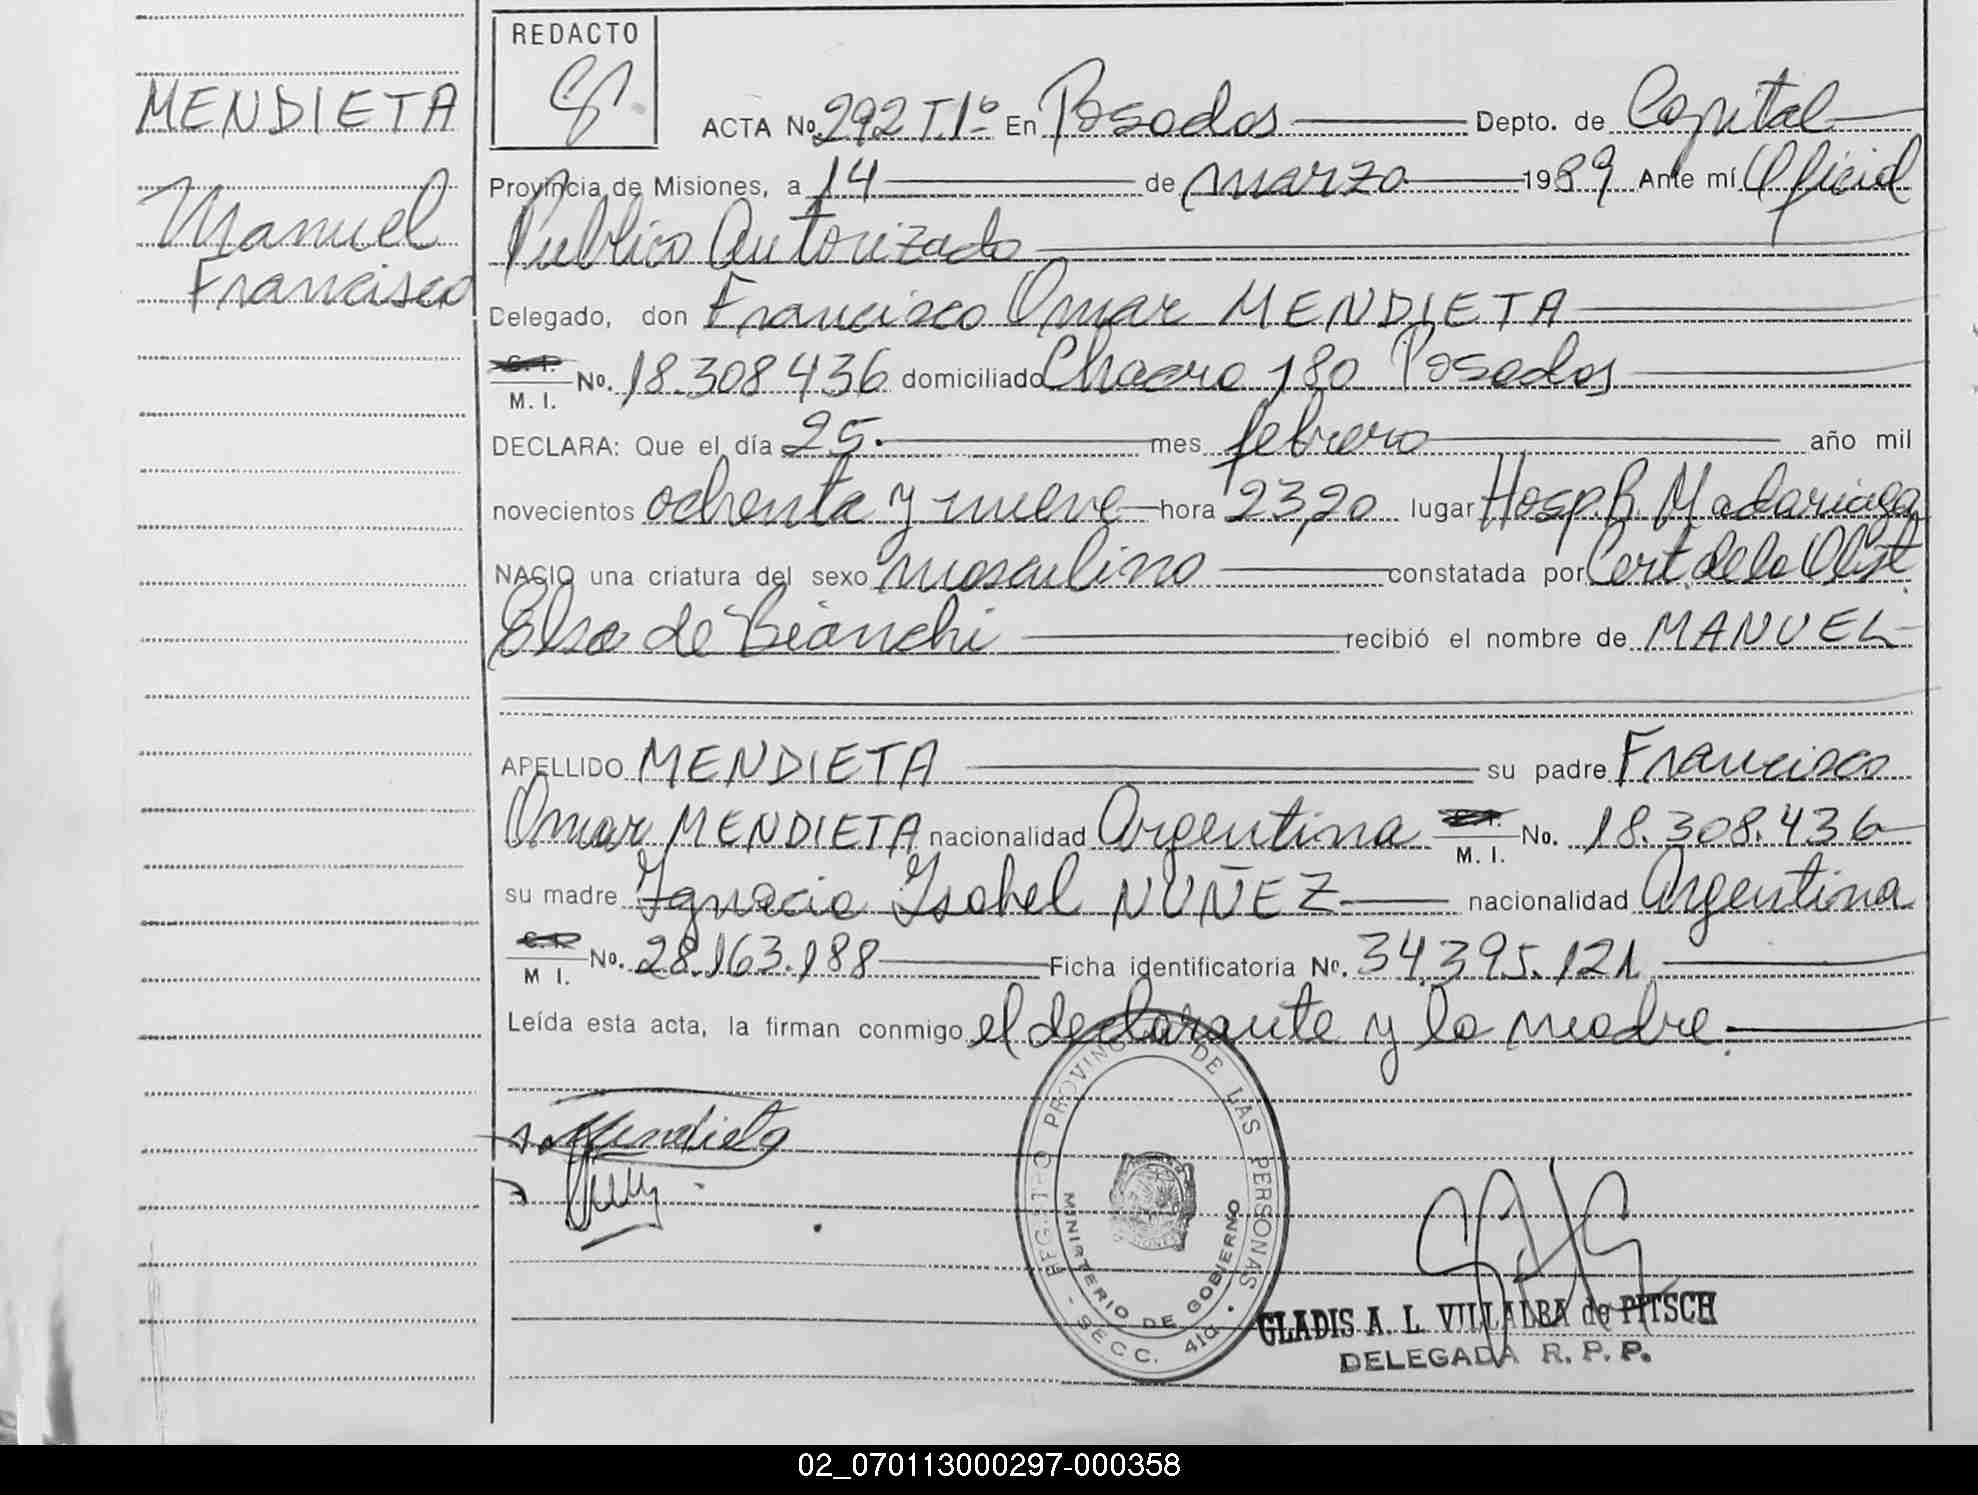 MENDIETA
Manuel
Francisco
REDACTO
ACTA No. 292 T.1º En Posadas Depto. de Capital
Provincia de Misiones, a 14 de marzo 1989 Ante mí Oficial
Publico Autorizado
Delegado, don Francisco Omar MENDIETA
C. I.
M. I. No. 18.308436 domiciliado Chacra 180 Posadas
DECLARA: Que el día 25. mes febrero año mil
novecientos ochenta y nueve hora 23,20 lugar Hosp. R. Madariaga
NACIO una criatura del sexo masculino constatada por Cert. de la Obst.
Elsa de Bianchi recibió el nombre de MANUEL
APELLIDO MENDIETA su padre Francisco
Omar MENDIETA nacionalidad Argentina C. I. M. I. No. 18.308.436
su madre Ignacia Isabel NUÑEZ nacionalidad Argentina
C. I.
M I. No. 28.163.188 Ficha identificatoria No. 34.395.121
Leída esta acta, la firman conmigo el declarante y la madre.
Mendieta
REGISTRO PROVINCIAL DE LAS PERSONAS
MINISTERIO DE GOBIERNO
- SECC. 41a.
GLADIS A. L. VILLALBA de PITSCH
DELEGADA R. P. P.
02_070113000297-000358